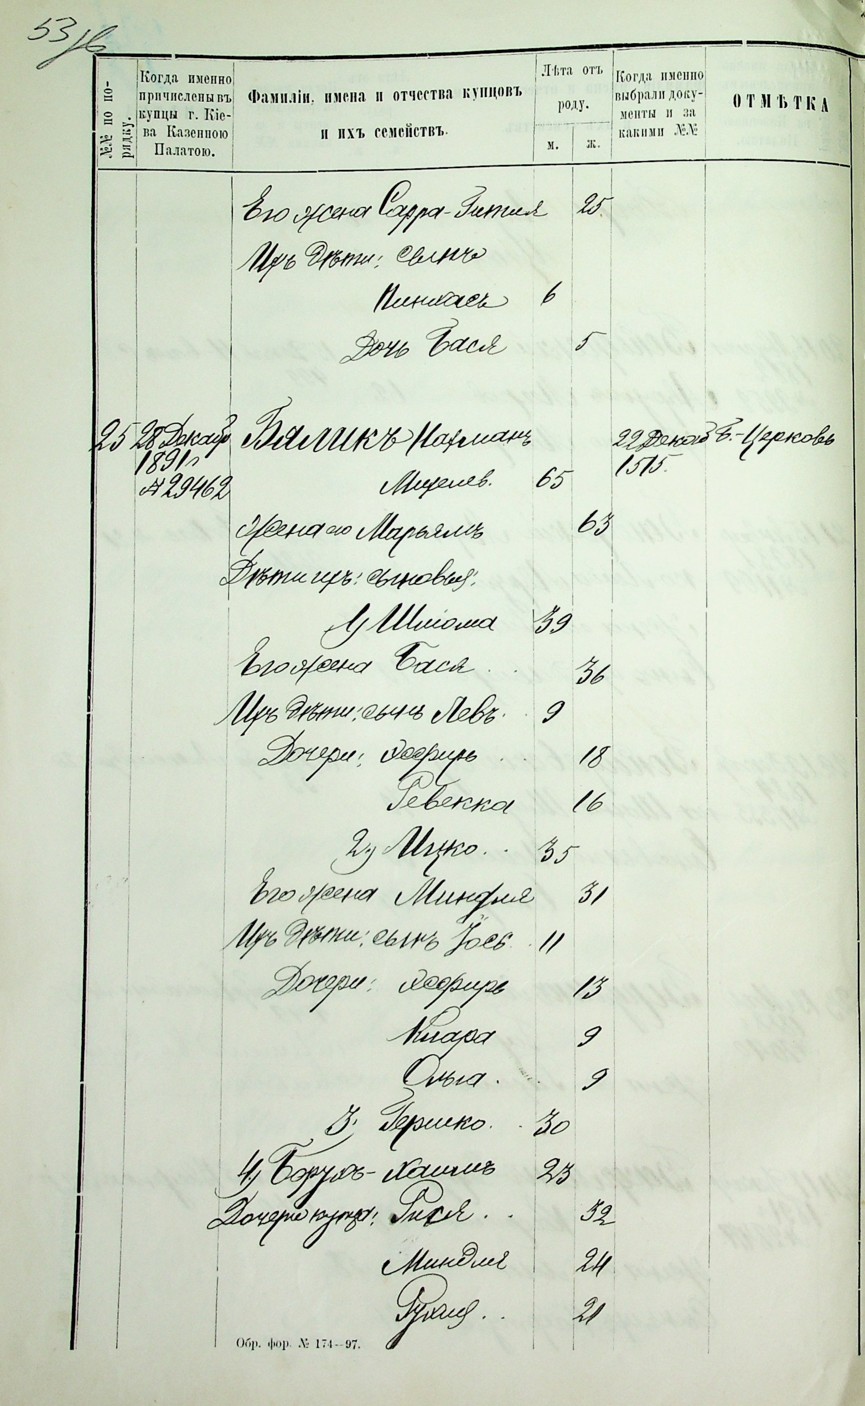 53 об
№№ по порядку.
Когда именно причислены въ купцы г. Кіева Казенною Палатою.
Фамиліи, имена и отчества купцовъ и ихъ семействъ.
Лѣта отъ роду.
м.
ж.
Когда именно выбрали документы и за какими №№
ОТМѢТКА
Его жена Сарра-Гитля 25
Ихъ дѣти: сынъ
Пинхасъ 6
Дочь Бася 5
25 28 Декабр Бяликъ Нахманъ 22 Декаб Б.-Церковь
1891 г 1515.
№ 29462 Мищелев. 65
Жена его Марьямъ 63
Дѣти ихъ: сыновья:
1) Шліома 39
Его жена Бася 36
Ихъ дѣти: сынъ Левъ 9
Дочери: Эсфирь 18
Ревекка 16
2) Ицко 35
Его жена Миндля 31
Ихъ дѣти: сынъ Іось 11
Дочери: Эсфирь 13
Клара 9
Ольга 9
3) Гершко 30
4) Борухъ-Хаимъ 23
Дочери купца: Рися 32
Миндля 24
Рухля 21
Обр. фор. № 174—97.